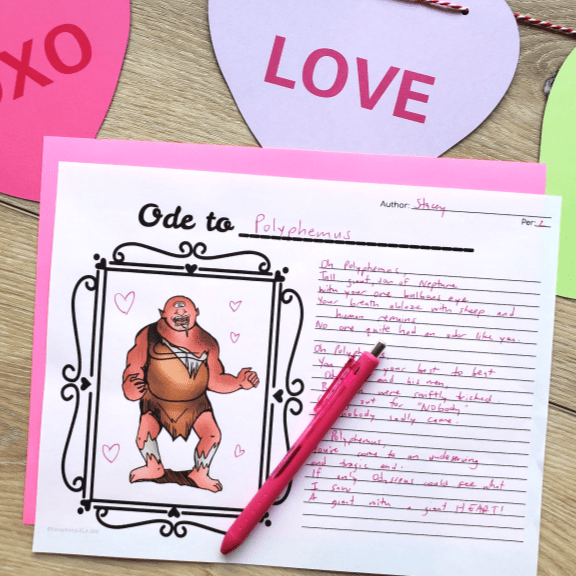 XO
LOVE
Author: Stacey
Per: 1
Ode to Polyphemus
Oh Polyphemus,
Tall giant, son of Neptune
with your one bulbous eye
Your breath ablaze with sheep and
human remains
No one quite had an odor like you.
Oh Polyph
You your best to beat
and his men,
were swiftly tricked
out for "NObody"
nobody sadly came.
Polyphemus,
You've come to an undeserving
and tragic end.
If only Odysseus could see what
I saw:
A giant with a giant HEART!